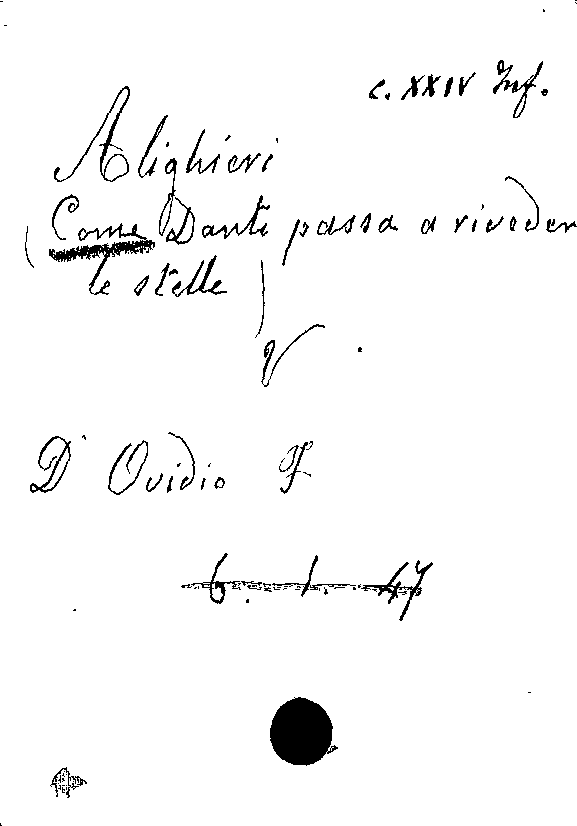 c. XXIV Inf.
Alighieri
(Come Dante passa a riveder
le stelle)
V.
D'Ovidio F
6. 1. 47